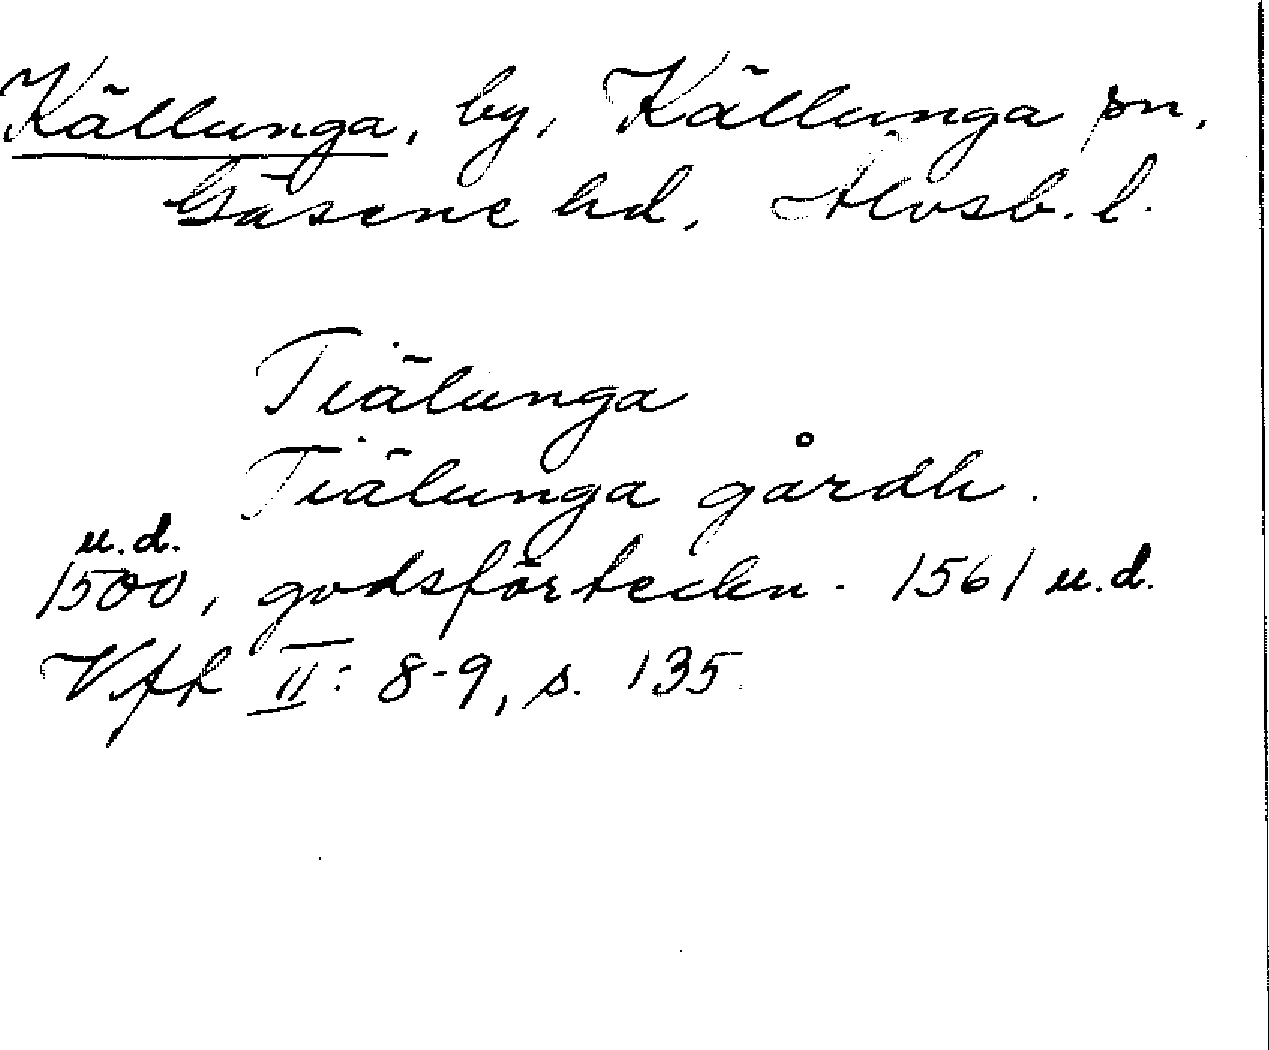 Källunga, by, Källunga sn,
Gäsene hd, Älvsb. l.
Tiälunga
Tiälunga gårdh.
u.d.
1500, godsförteckn. 1561 u.d.
Vfft II: 8-9, s. 135